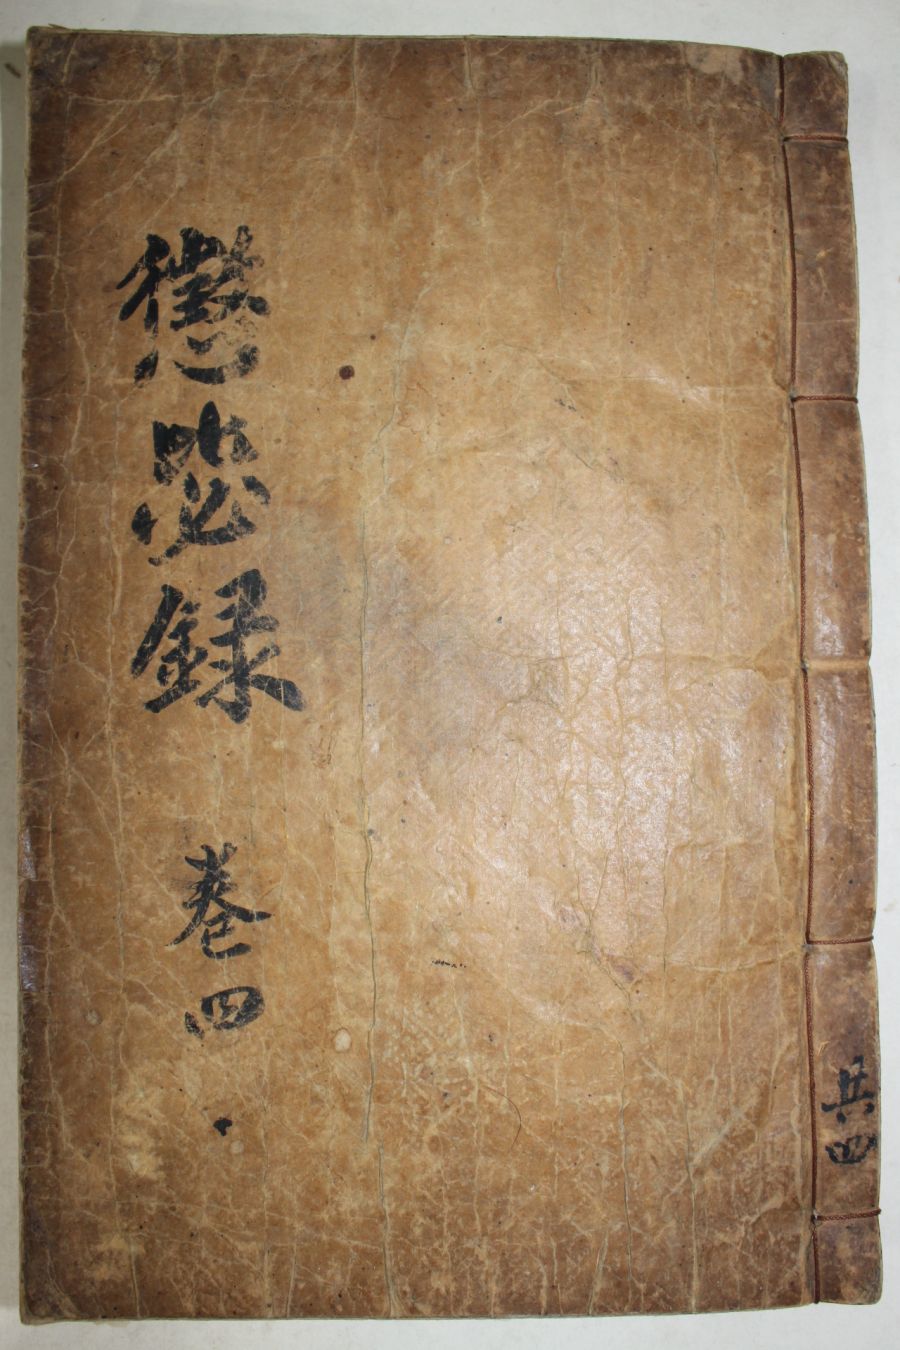 懲毖錄 卷四
共四